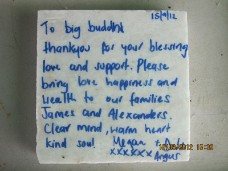 15/9/12
To big buddha
thankyou for your blessing
love and support. Please
bring love happiness and
health to our families
James and Alexanders.
Clear mind, warm heart
kind soul Megan +
xxxxxx Angus